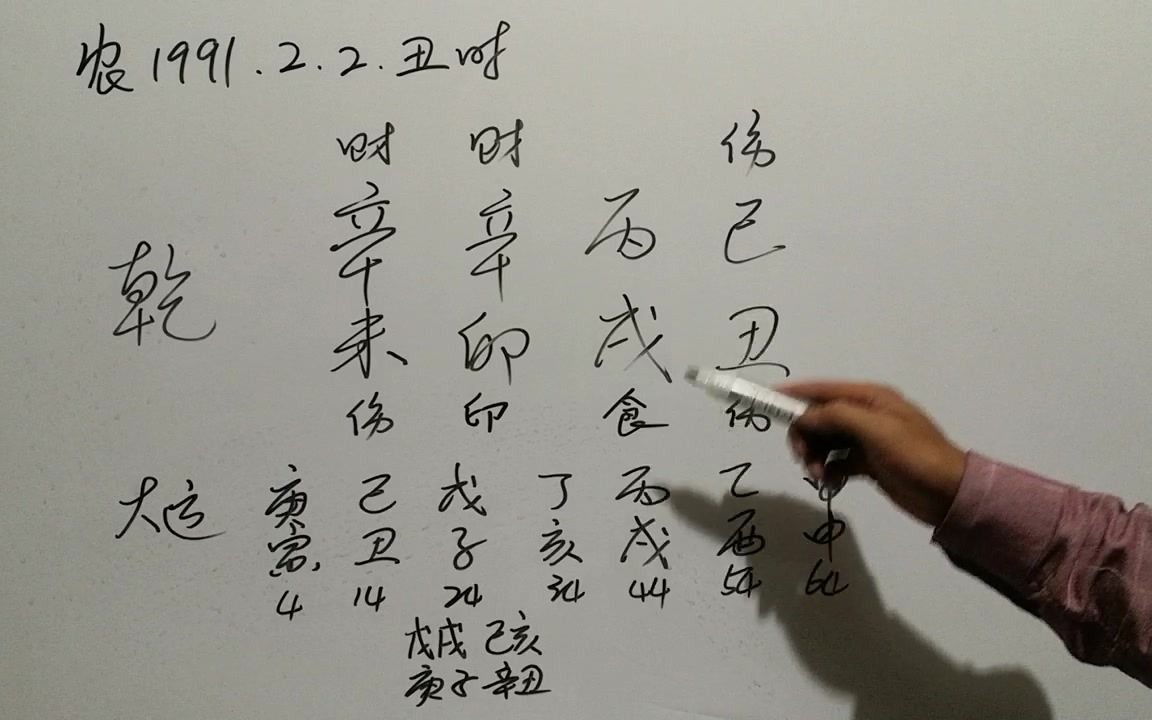 农1991.2.2.丑时
财 财 伤
辛 辛 丙 己
乾
未 卯 戌 丑
伤 印 食 伤
大运 庚 己 戊 丁 丙 乙 甲
寅 丑 子 亥 戌 酉 申
4 14 24 34 44 54 64
戊戌 己亥
庚子 辛丑